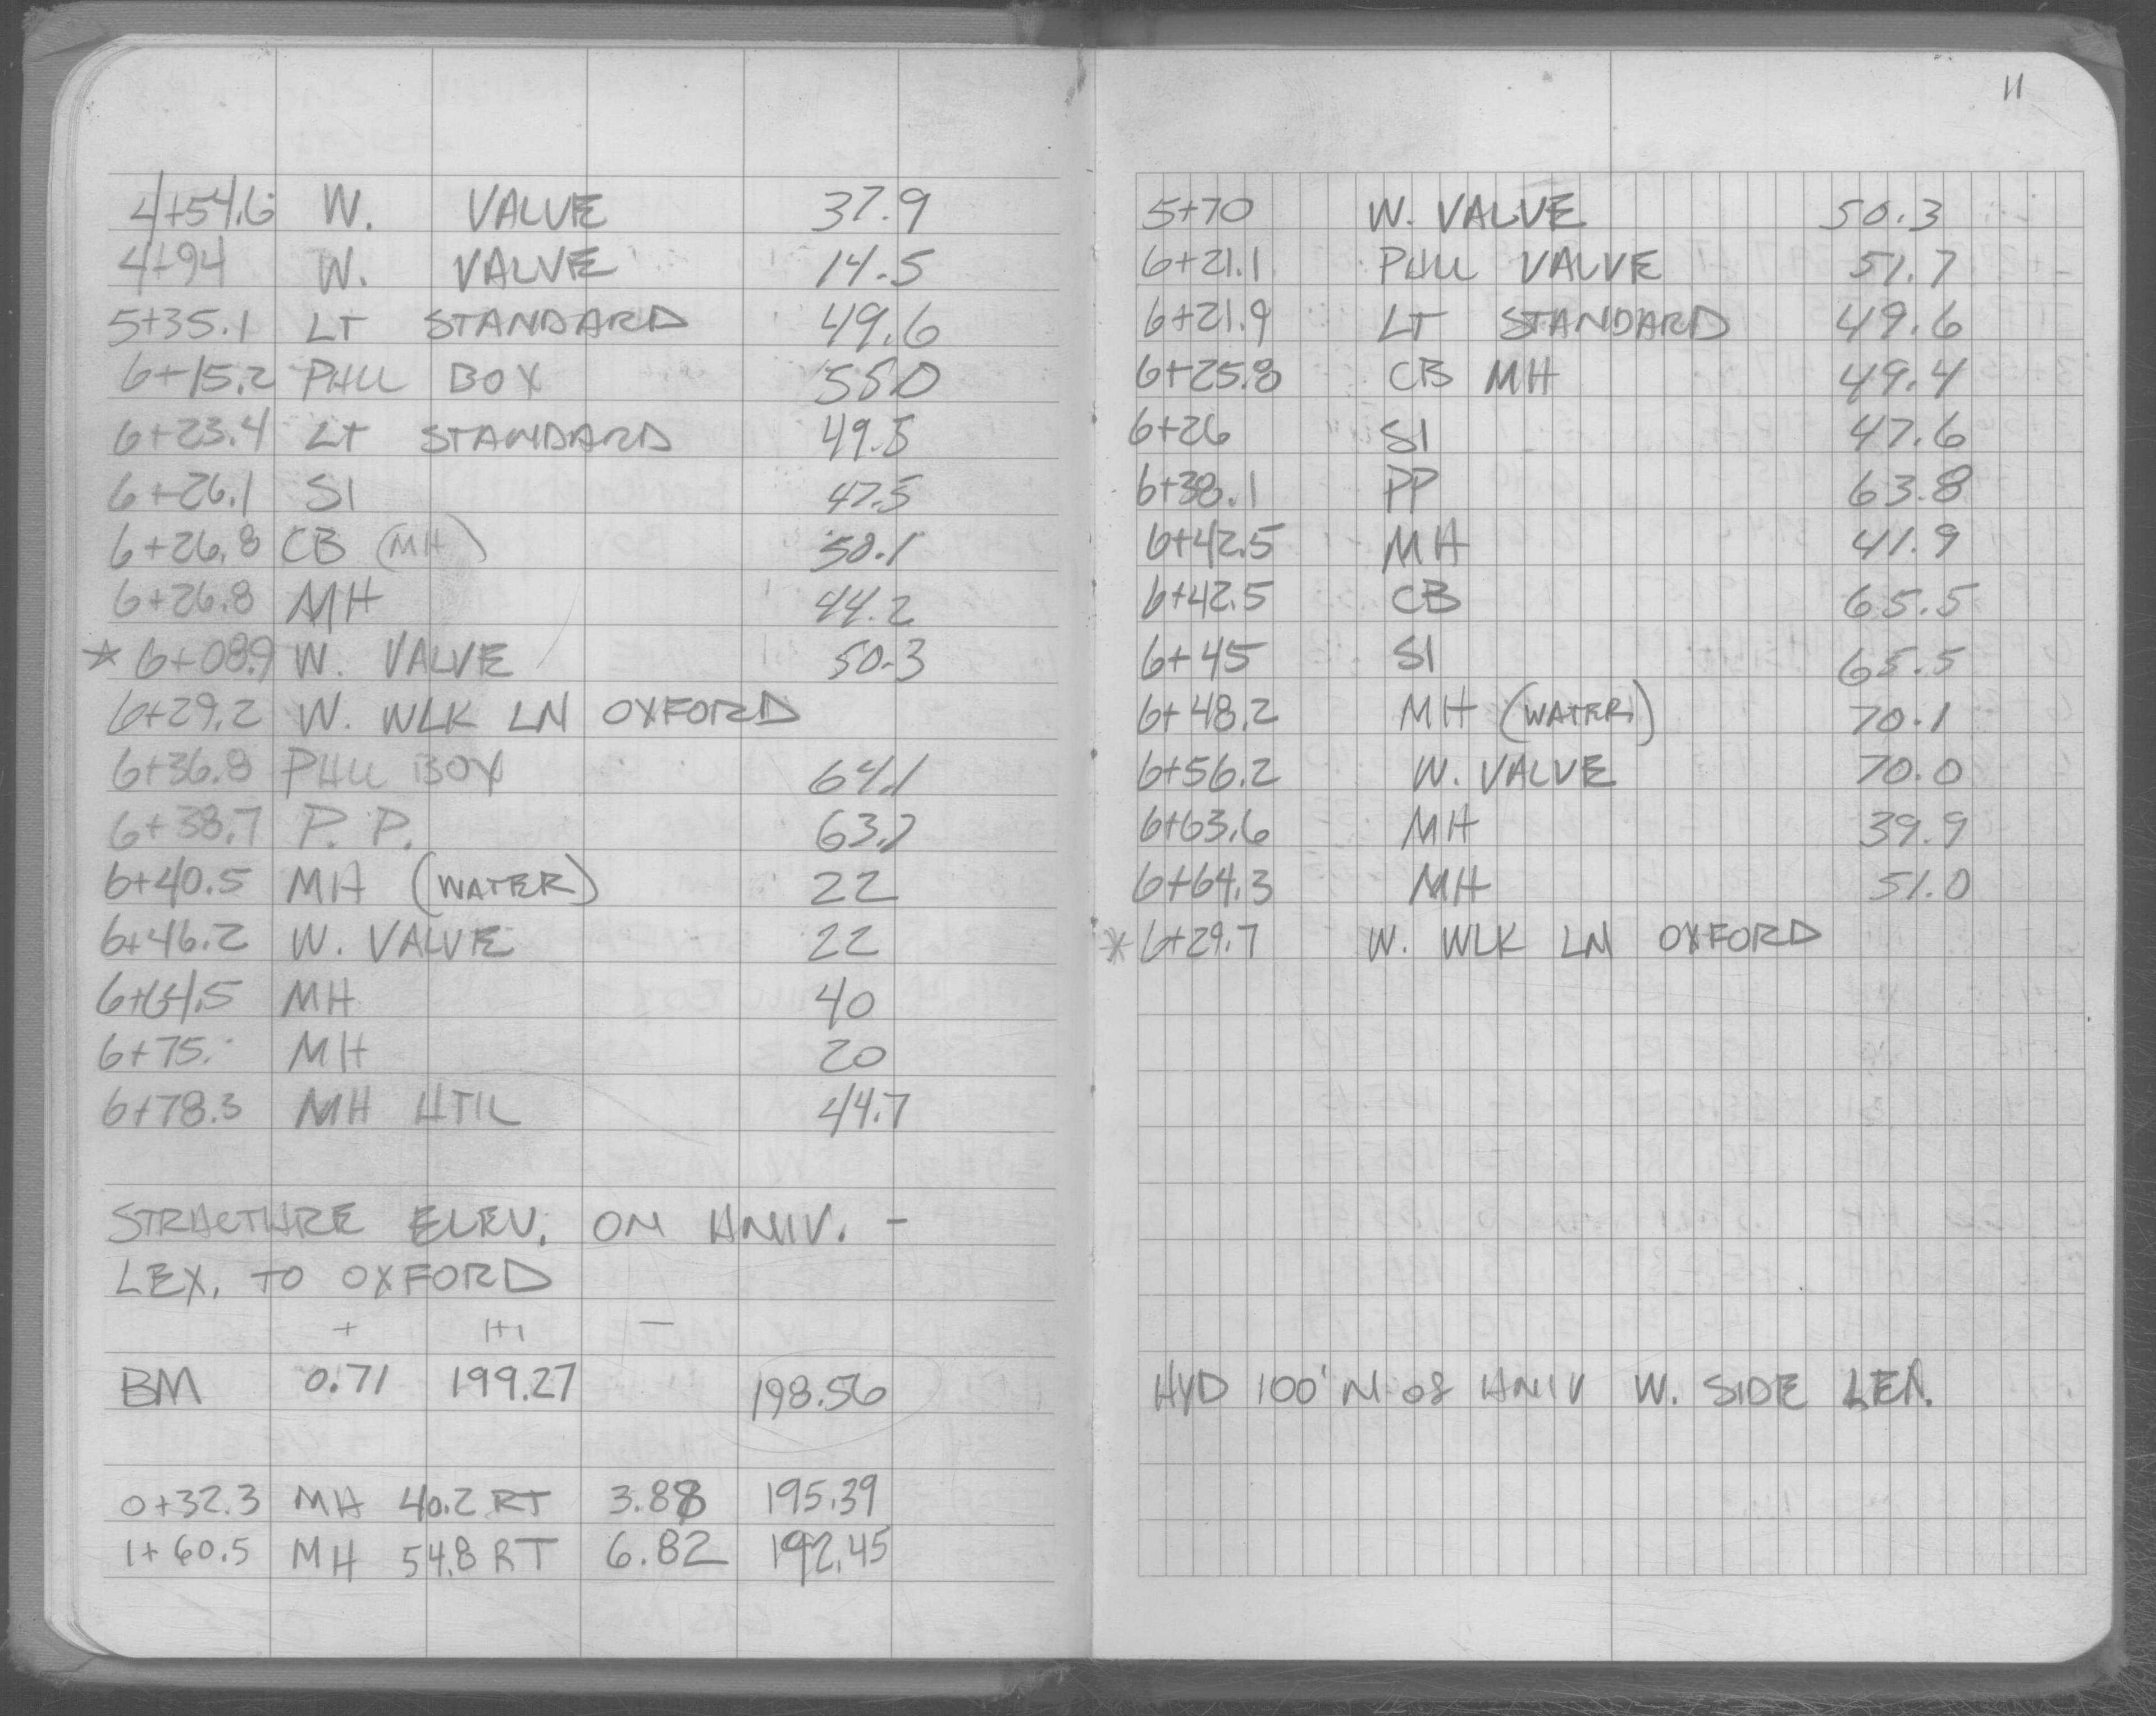 4+54.6 W. VALVE 37.9
4+94 W. VALVE 14.5
5+35.1 LT STANDARD 49.6
6+15.2 PHU BOX 55.0
6+23.4 LT STANDARD 49.5
6+26.1 SI 47.5
6+26.8 CB (MH) 50.1
6+26.8 MH 44.2
* 6+08.9 W. VALVE 50.3
6+29.2 W. WLK LN OXFORD
6+36.8 PHU BOX 64.1
6+38.7 P. P. 63.7
6+40.5 MH (WATER) 22
6+46.2 W. VALVE 22
6+64.5 MH 40
6+75. MH 20
6+78.3 MH UTIL 44.7
STRUCTURE ELEV. ON UNIV. -
LEX. TO OXFORD
+ HI -
BM 0.71 199.27 198.56
0+32.3 MH 40.2 RT 3.88 195.39
1+60.5 MH 54.8 RT 6.82 192.45
11
5+70 W. VALVE 50.3
6+21.1 PHU VALVE 51.7
6+21.9 LT STANDARD 49.6
6+25.8 CB MH 49.4
6+26 SI 47.6
6+38.1 PP 63.8
6+42.5 MH 41.9
6+42.5 CB 65.5
6+45 SI 65.5
6+48.2 MH (WATER) 70.1
6+56.2 W. VALVE 70.0
6+63.6 MH 39.9
6+64.3 MH 51.0
* 6+29.7 W. WLK LN OXFORD
HYD 100' N of UNIV W. SIDE LEX.